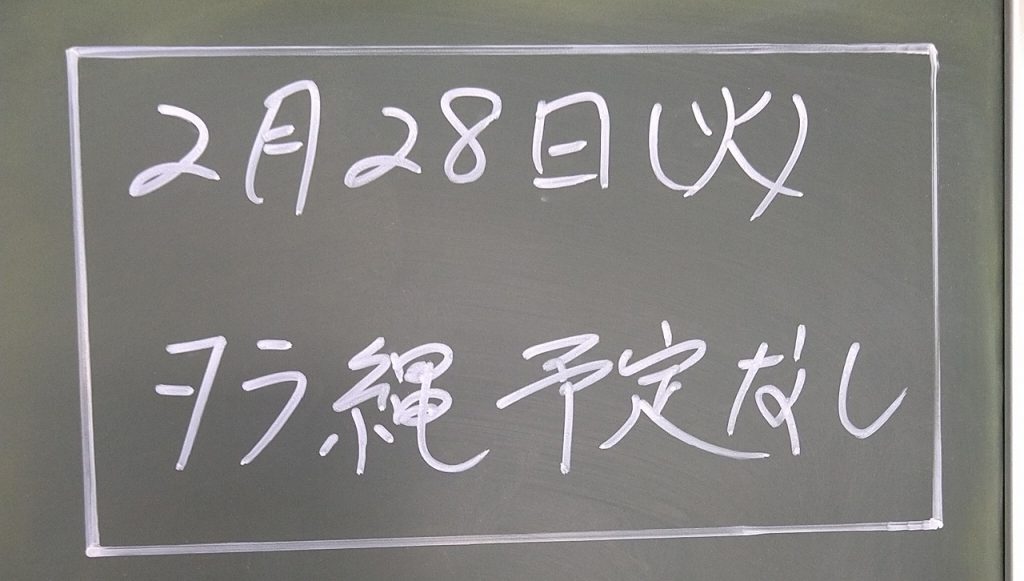 2月28日(火)
ヲラ縄 予定なし